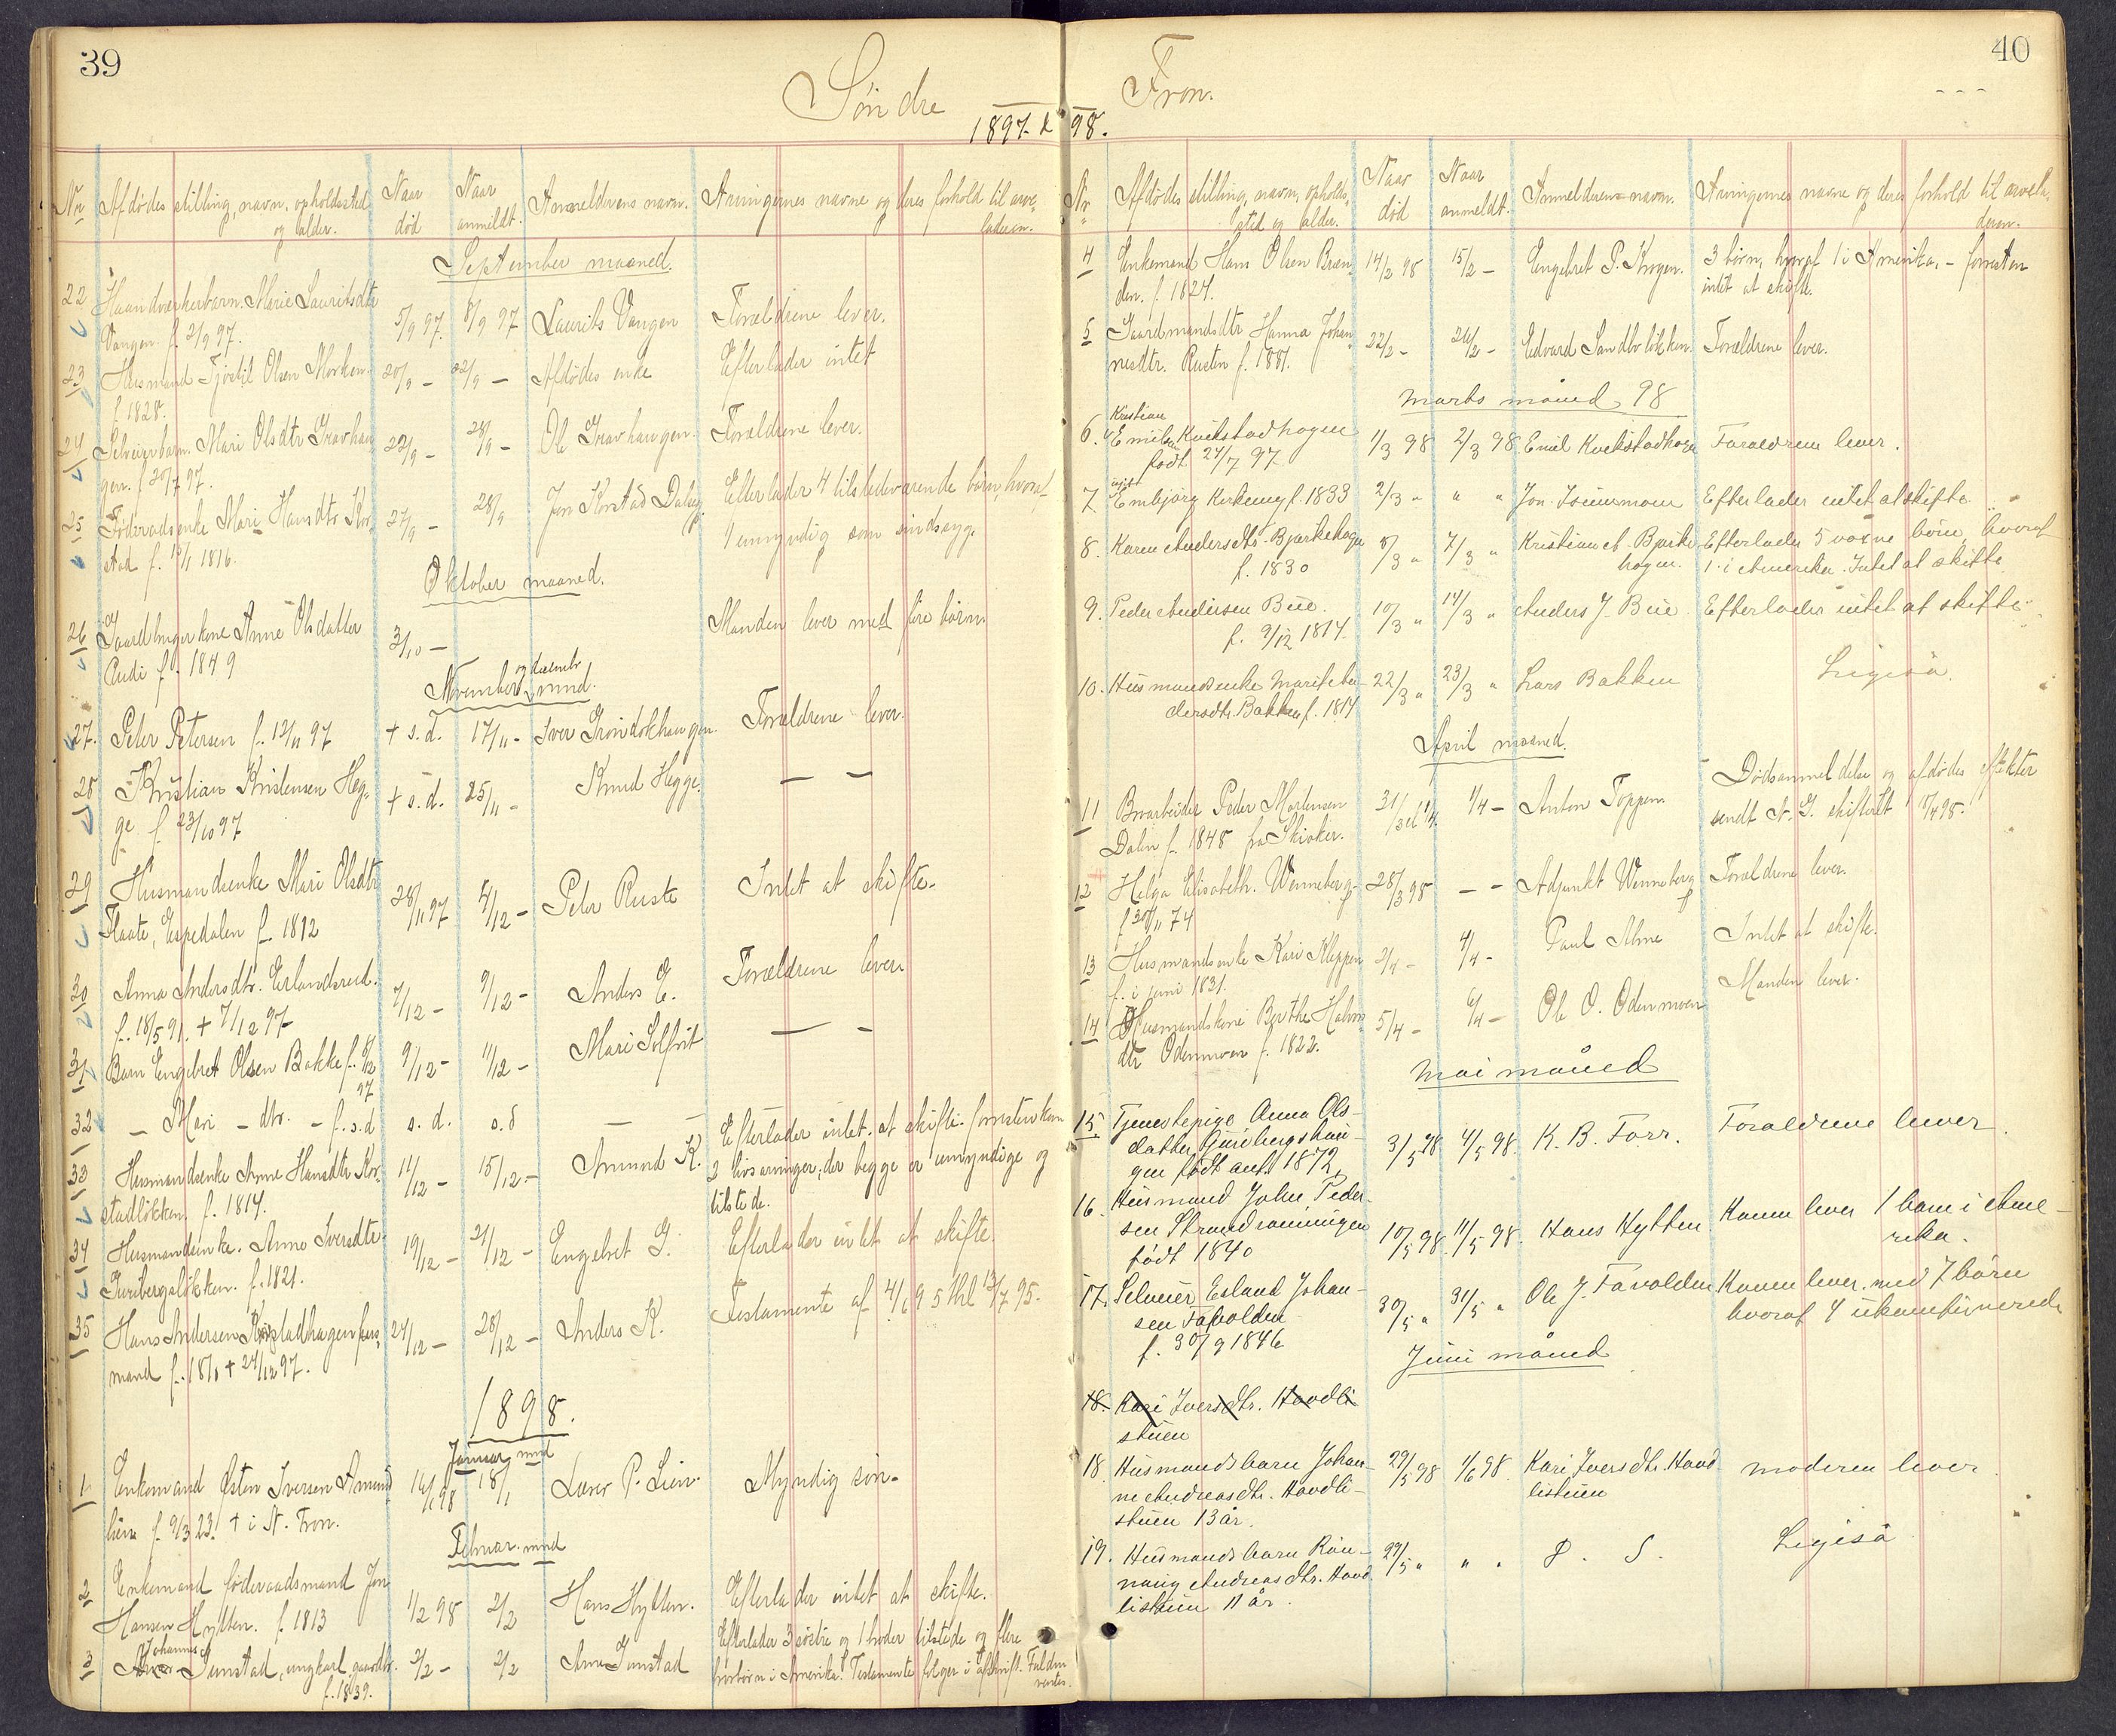 39
Söndre
1897 &
Nr
Afdödes stilling, navn, opholdssted
og alder.
Naar
död
Naar
anmeldt.
Anmelderens navn.
Arvingernes navne og deres forhold til arve-
laderen.
September maaned.
22
Haandværkerbarn. Marie Lauritsdtr
Vangen f. 2/9 97.
5/9 97.
8/9 97
Laurits Vangen
Forældrene lever.
23
Husmand Tjöstil Olsen Morken
f. 1828.
20/9 -
22/9 -
Afdödes enke
Efterlader intet
24
Selveierbarn. Mari Olsdtr Gravhau-
gen. f. 20/7 97.
22/9 -
28/9 -
Ole Gravhaugen.
Forældrene lever.
25
Föderaadsenke Mari Hansdtr Kor-
stad f. 1816.
27/9 -
28/9
Jon Korstad Dalseg.
Efterlader 4 tilstedeværende börn, hvoraf
1 umyndig som sindssyg.
Oktober maaned.
26
Gaardbrugerkone Anne Olsdatter
Audi f. 1849
3/10 -
Manden lever med fire börn.
November og decembr mnd.
27.
Peter Petersen f. 12/11 97
+ s. d.
17/11 -
Iver Gröndokhaugen.
Forældrene lever.
28
Kristian Kristensen Heg-
ge f. 23/10 97
+ s. d.
25/11 -
Knud Hegge.
- -
29
Husmandsenke Mari Olsdtr
Flaate, Espedalen f. 1812
28/11 97
4/12 -
Peter Ruste
Intet at skifte.
30
Anna Andersdtr. Erlandsrud.
f. 18/5 91. + 7/12 97
7/12 -
9/12 -
Anders E.
Forældrene lever.
31
Barn Engebret Olsen Bakke f. 8/12
97
9/12 -
11/12 -
Mari Solfrit
- -
32
- Mari - dtr. - f. s. d
s. d.
s. d
-
-
33
Husmandsenke Anne Hansdtr Kor-
stadlökken. f. 1814.
11/12 -
15/12 -
Amund K.
Efterlader intet at skifte. forresten kun
2 livsarvinger, der begge er umyndige og
tilstede.
34
Husmandsenke. Anne Iversdtr
Guribergslökken. f. 1821.
19/12 -
21/12 -
Engebret G.
Efterlader intet at skifte.
35
Hans Andersen Korstadhagen hus-
mand f. + 24/12 97.
24/12 -
28/12 -
Anders K.
Testamente af 4/6 95 thl 13/7 95.
1898.
Januar mnd
1
Enkemand Østen Iversen Amund-
lien f. 9/3 23. + i N. Fron.
14/1 98
18/1
Laver P. Lien.
Myndig sön.
Februar. mnd
2
Enkemand föderaadsmand Jon
Hansen Hytten. f. 1813
1/2 98
2/2
Hans Hytten.
Efterlader intet at skifte.
3
Johannes
Sunstad, ungkarl, gaardbr.
f. 1839.
2/2 -
2/2
Arne Sunstad
Efterlader 3 söstre og 1 broder tilstede og flere
brorbörn i Amerika. Testamente fölger i afskrift. Fuldm
ventes.
40
Fron.
98.
Nr
Afdödes stilling, navn, opholds-
sted og alder.
Naar
död
Naar
anmeldt.
Anmelderens navn.
Arvingernes navne og deres forhold til arvela-
deren.
4
Enkemand Hans Olsen Bræn-
den. f. 1824.
14/2 98
15/2 -
Engebret P. Krogen.
3 börn, hvoraf 1 i Amerika. - forresten
intet at skifte.
5
Gaardmandsdtr Hanna Johan-
nesdtr. Rusten f. 1881.
22/2 -
26/2 -
Edvard Sandbolökken.
Forældrene lever.
marts måned 98
6.
Kristian
Emilsen Kvikstadhagen
født 27/7 97
1/3 98
2/3 98
Emil Kvikstadhagen
Forældrene lever.
7
Embjørg Kirkeng f. 1833
2/3 "
" "
Efterlader intet at skifte
8.
Karen Andersdtr. Bjørkehagen
f. 1830
5/3 "
7/3 "
Kristian A. Bjørke-
hagen.
Efterlader 5 voxne börn, hvoraf
1 i Amerika. Intet at skifte
9.
Peder Andersen Bue.
f. 9/12 1814
10/3 "
14/3 "
Anders J. Bue
Efterlader intet at skifte
10.
Husmandsenke Marit An-
dersdtr. Bakken f. 1814
22/3 "
23/3 "
Lars Bakken
Ligeså
April maaned.
11
Broarbeider Peder Mortensen
Dalen f. 1848 fra Skiaker.
31/3 el 1/4.
1/4 -
Anton Toppen
Dödsanmeldelse og afdödes effekter
sendt N. G. skifteret 18/4 98.
12
Helga Elisabeth. Wenneberg
f. 30/11 74
28/3 98
- -
Adjunkt Wenneberg
Forældrene lever.
13
Husmandsenke Kari Kleppen
f. i juni 1831.
2/4 -
4/4 -
Paul Alme
Intet at skifte.
14
Husmandskone Berthe Halvor
dtr Odenmoen f. 1822.
5/4 -
6/4 -
Ole O. Odenmoen
Manden lever.
mai måned
15
Tjenestepige Anna Ols-
datter Guribergshau-
gen født ant. 1872,
3/5 98
4/5 98.
K. B. Forr.
Forældrene lever.
16.
Husmand John Peder-
sen Strandrønningen
født 1840
10/5 98.
11/5 98.
Hans Hytten
Konen lever 1 barn i Ame-
rika.
17.
Selveier Erland Johan-
sen Favolden
f. 30/9 1846
30/5 "
31/5 "
Ole J. Favolden
Konen lever med 7 börn
hvoraf 4 ukonfirmerede
Juni måned
18. Kari Iversdtr. Hovdli
stuen
18.
Husmandsbarn Johan-
ne Andreasdtr. Hovdli-
stuen 13 år.
29/5 98
1/6 98
Kari Iversdtr. Hovd
listuen
moderen lever
19.
Husmandsbarn Røn-
naug Andreasdtr. Hovd
listuen 11 år.
29/5 "
" "
D. S.
Ligeså